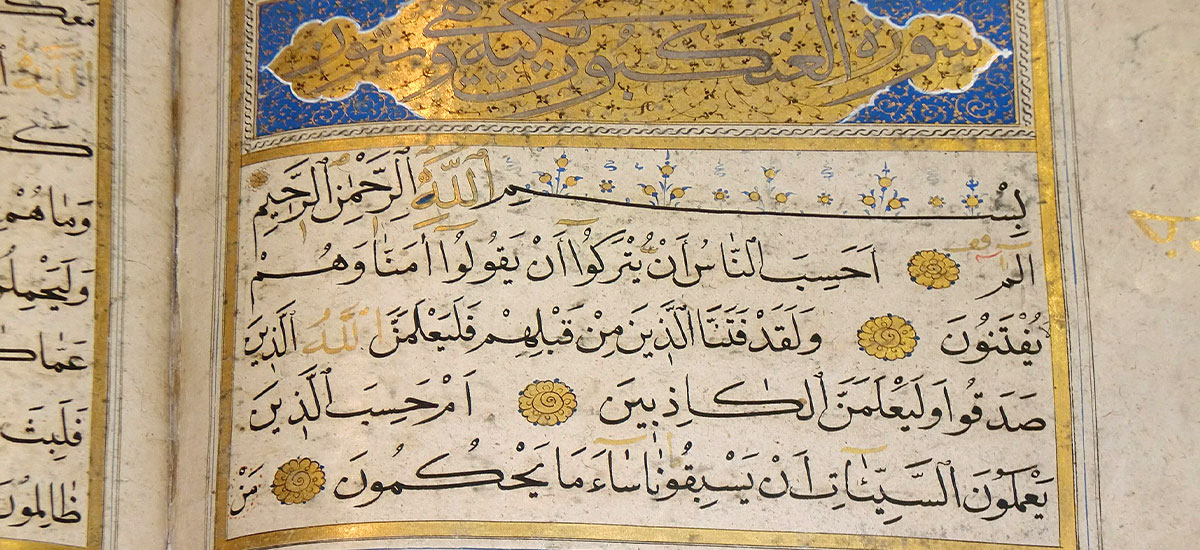 سورة العنكبوت مكية وستون
بِسْمِ اللَّهِ الرَّحْمٰنِ الرَّحِيمِ
الم اَحَسِبَ النَّاسُ أَنْ يُتْرَكُوا أَنْ يَقُولُوا أٰمَنَّا وَهُمْ
يُفْتَنُونَ وَلَقَدْ فَتَنَّا الَّذِينَ مِنْ قَبْلِهِمْ فَلَيَعْلَمَنَّ اللَّهُ الَّذِينَ
صَدَقُوا وَلَيَعْلَمَنَّ الْكَاذِبِينَ اَمْ حَسِبَ الَّذِينَ
يَعْمَلُونَ السَّيِّئَاتِ اَنْ يَسْبِقُونَا سَاءَ مَا يَحْكُمُونَ مَنْ
اللَّه
وَمَا هُمْ
فَلَبِثَ
ظَالِمُونَ